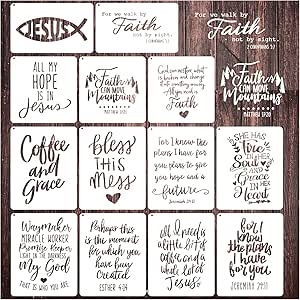 JESUS
For we walk by
Faith
not by sight.
2 CORINTHIANS 5:7
For we walk by
Faith
not by sight.
2 CORINTHIANS 5:7
ALL MY
HOPE
IS IN
Jesus
Faith
CAN MOVE
Mountains
MATTHEW 17:20
God can restore what
is broken and change
it into something
All you need is
Faith
Faith
CAN MOVE
Mountains
MATTHEW 17:20
Coffee
and
Grace
bless
THIS
MESS
For I know the
plans I have for
you plans to give
you hope and a
future
Jeremiah 29:11
SHE HAS
Fire
IN HER
Soul
AND
Grace
IN HER
Heart
WAYMAKER
MIRACLE WORKER
PROMISE KEEPER
LIGHT IN THE DARKNESS
My GOD
THAT IS WHO YOU ARE
Perhaps this
is the moment
for which you
have been
Created
ESTHER 4:14
all I need is
a little bit of
coffee and a
whole lot of
Jesus
for I
know the
plans
I have
for you
JEREMIAH 29:11